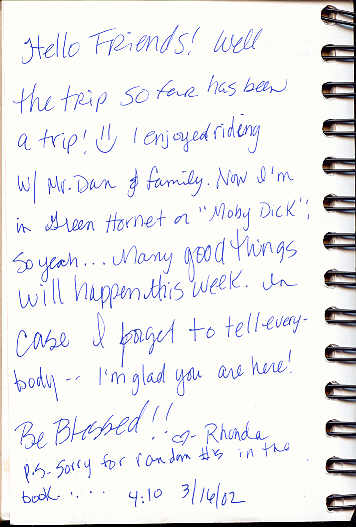 Hello Friends! Well
the trip so far has been
a trip! I enjoyed riding
w/ Mr. Dan & family. Now I'm
in Green Hornet or "Moby Dick";
so yeah... Many good things
will happen this week. In
case I forget to tell every-
body -- I'm glad you are here!
Be Blessed!!
♡- Rhonda
P.S. Sorry for random #s in the
book.... 4:10 3/16/02